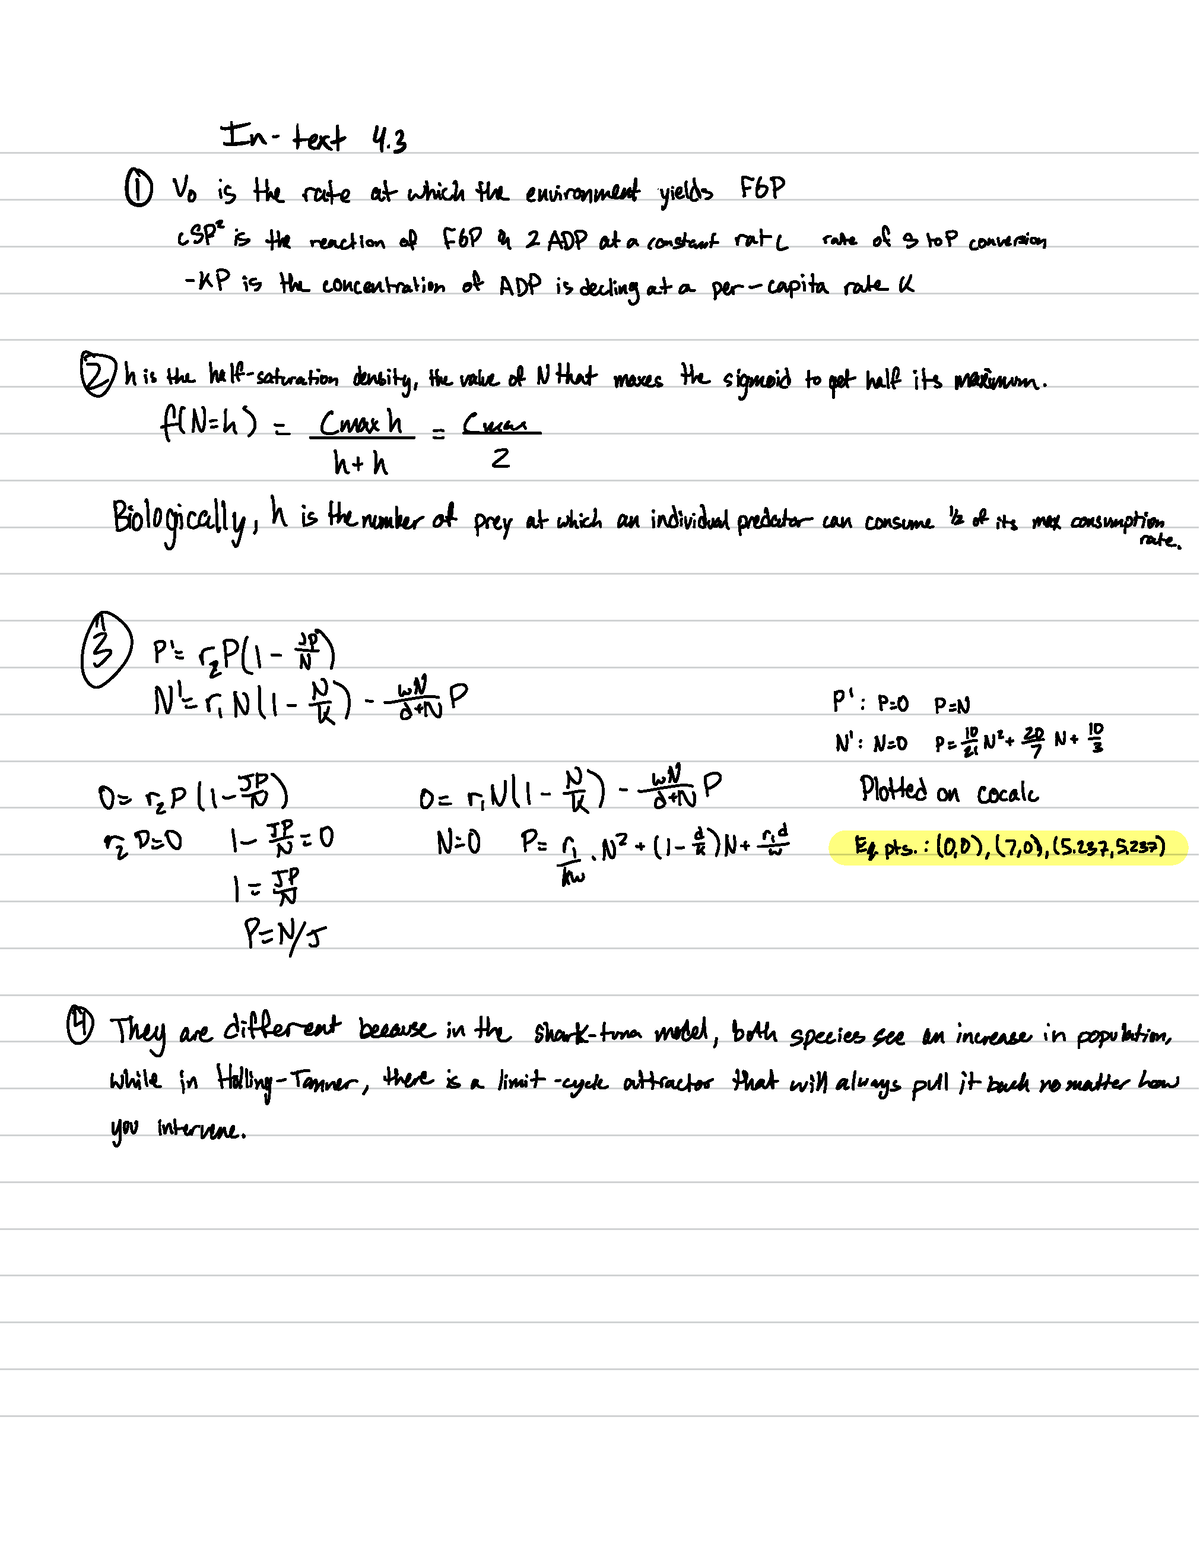 In-text 4.3
① V₀ is the rate at which the environment yields F6P
cSP² is the reaction of F6P & 2 ADP at a constant rat c rate of S to P conversion
-KP is the concentration of ADP is decling at a per-capita rate K
② h is the half-saturation density, the value of N that maxes the sigmoid to get half its maximum.
f(N=h) = Cmax h / h+h = Cmax / 2
Biologically, h is the number of prey at which an individual predator can consume ½ of its max consumption
rate.
③ P'= r₂P(1 - JP/N)
N'= r₁N(1 - N/k) - wN/d+N P
P': P=0 P=N
N': N=0 P= 10/21 N² + 20/7 N + 10/3
0= r₂P(1 - JP/N) 0= r₁N(1 - N/k) - wN/d+N P Plotted on cocalc
r₂P=0 1 - JP/N = 0 N=0 P= r₁/kw · N² + (1 - d/k)N + r₁d/w Eq. pts.: (0,0), (7,0), (5.237, 5.237)
1 = JP/N
P=N/J
④ They are different because in the shark-tuna model, both species see an increase in population,
while in Holling-Tanner, there is a limit-cycle attractor that will always pull it back no matter how
you intervene.